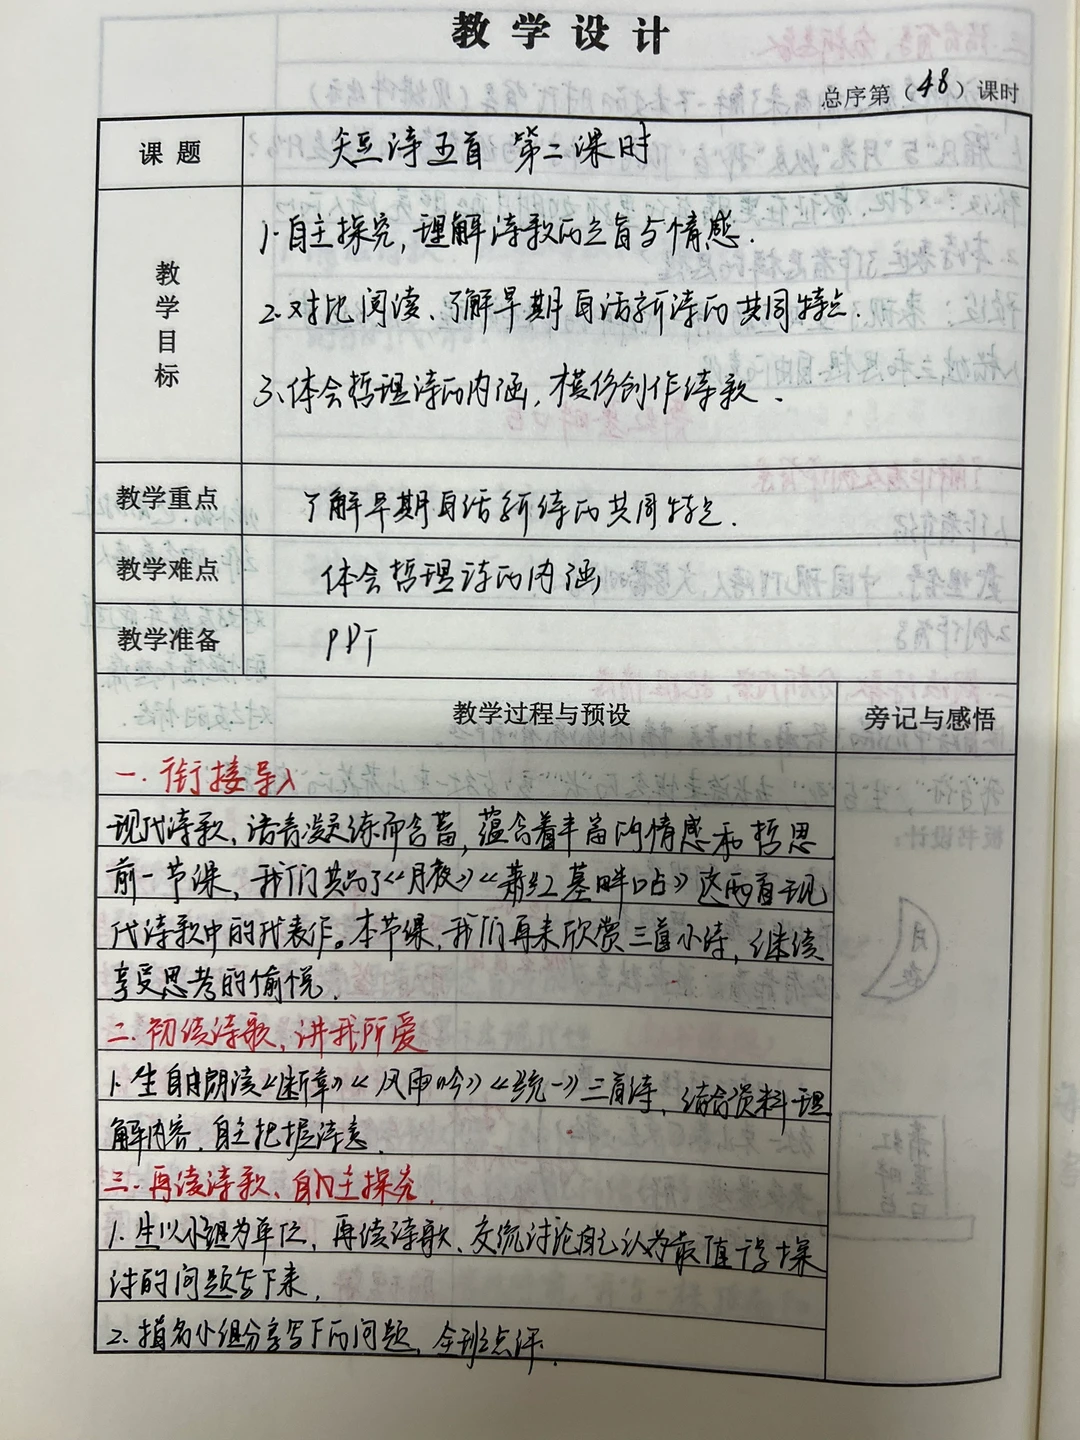 教学设计
总序第（48）课时
课题 短诗五首 第二课时
教学目标
1.自主探究,理解诗歌的主旨与情感.
2.对比阅读、了解早期白话新诗的共同特点.
3.体会哲理诗的内涵,模仿创作诗歌.
教学重点 了解早期白话新诗的共同特点.
教学难点 体会哲理诗的内涵
教学准备 PPT
教学过程与预设 旁记与感悟
一.衔接导入
现代诗歌、语言凝练而含蓄,蕴含着丰富的情感和哲思
前一节课,我们共品了《月夜》《萧红墓畔口占》这两首现
代诗歌中的代表作。本节课,我们再来欣赏三首小诗,继续
享受思考的愉悦.
二.初读诗歌,讲我所爱
1.生自由朗读《断章》《风雨吟》《统一》三首诗,结合资料理
解内容.自主把握诗意
三.再读诗歌、自主探究.
1.生以小组为单位,再读诗歌、交流讨论自己认为最值得探
讨的问题写下来.
2.指名小组分享写下的问题,全班点评.